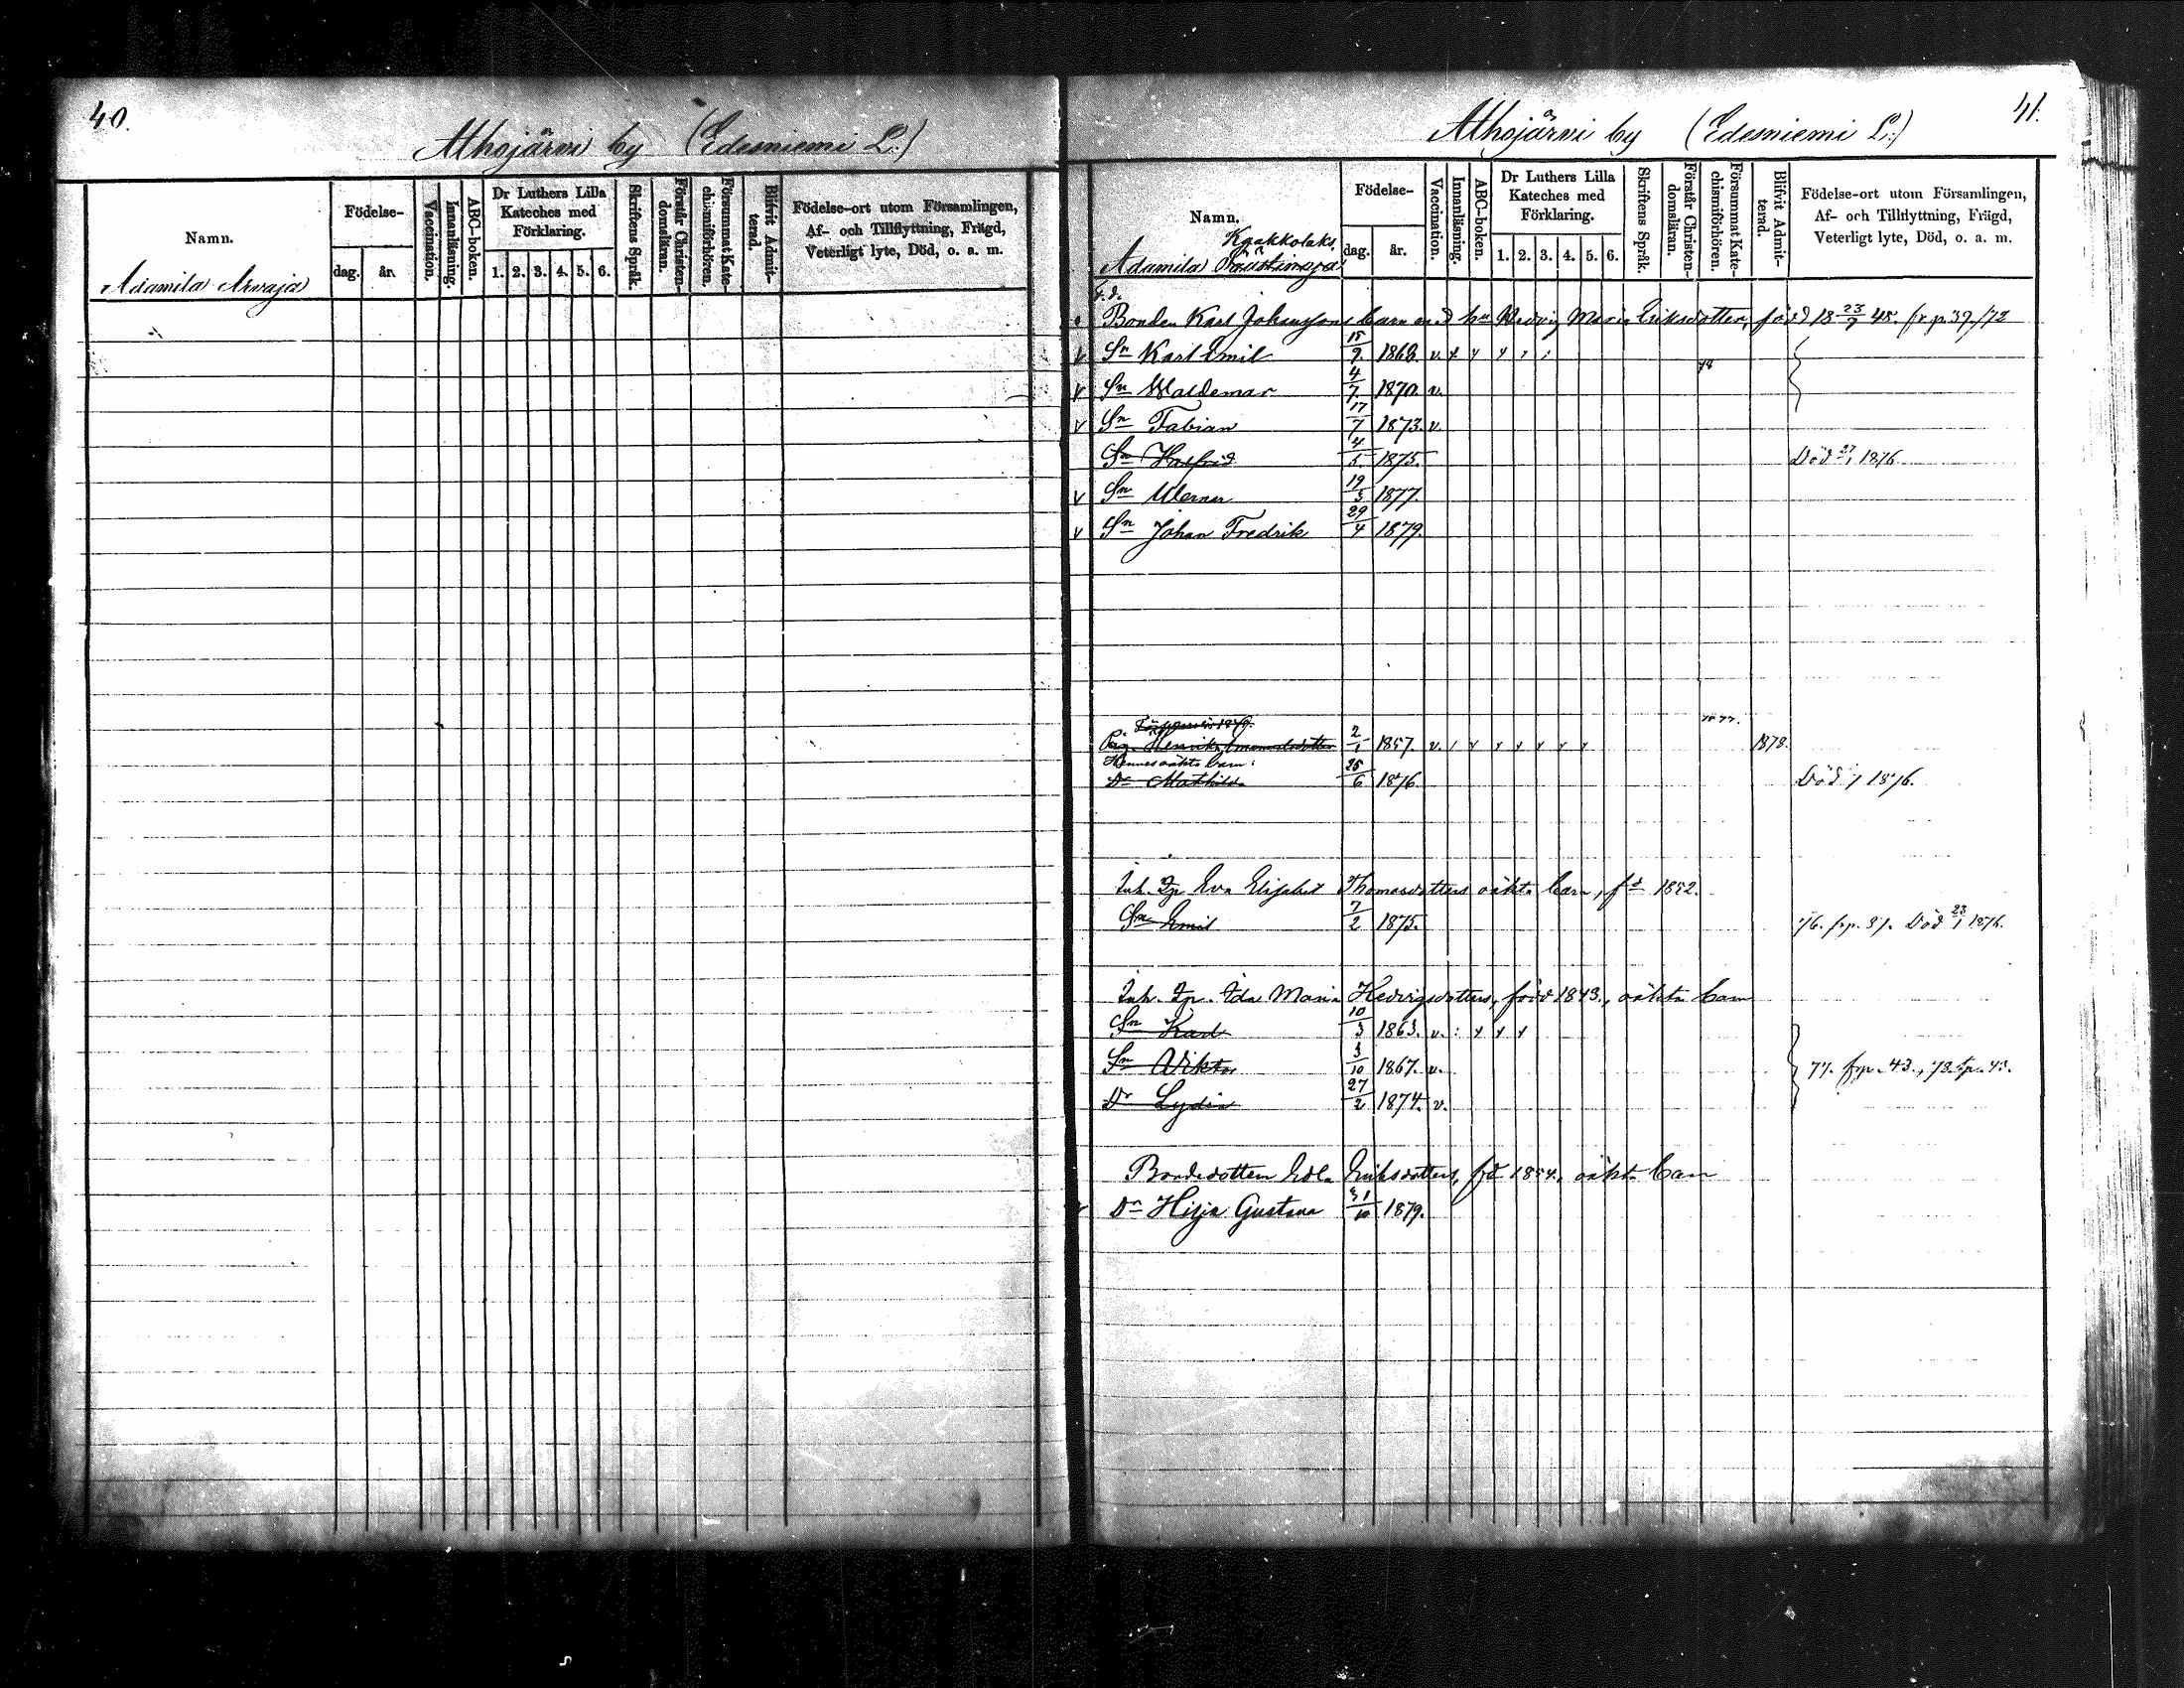 40.
Alhojärvi by (Edesniemi L:)
Namn.
Födelse-
dag. år.
Vaccination.
Innanläsning.
ABC-boken.
Dr Luthers Lilla
Kateches med
Förklaring.
1. 2. 3. 4. 5. 6.
Skriftens Språk.
Förstår Christen-
domsläran.
Försummat Kate-
chismiförhören.
Blifvit Admit-
terad.
Födelse-ort utom Församlingen,
Af- och Tillflyttning, Frägd,
Veterligt lyte, Död, o. a. m.
Adamila Arvaja
41.
Alhojärvi by (Edesniemi L:)
Namn.
Födelse-
dag. år.
Vaccination.
Innanläsning.
ABC-boken.
Dr Luthers Lilla
Kateches med
Förklaring.
1. 2. 3. 4. 5. 6.
Skriftens Språk.
Förstår Christen-
domsläran.
Försummat Kate-
chismiförhören.
Blifvit Admit-
terad.
Födelse-ort utom Församlingen,
Af- och Tillflyttning, Frägd,
Veterligt lyte, Död, o. a. m.
Adamila
F.d.
Bonden Karl Johanssons barn med hu Hedvig Maria Eriksdotter, född 18 23/7 48. fr.p. 39./78
v Sn Karl Emil 15/9. 1868. v.
78
v Sn Waldemar 4/7. 1870. v.
v Sn Fabian 17/7 1873. v.
Sn Halfrid 4/5. 1875. Död 27/1 1876
v Sn Werner 19/3 1877.
v Sn Johan Fredrik 29/4 1879.
1877.
Pig. Henrika 2/1 1857. v. 1878.
Hennes oäkta barn:
Dr Mathilda 25/6 1876. Död 1876.
Inh. Dr Eva Elisabet Thomasdotters oäkta barn, fd 1852.
Sn Emil 7/2 1875. 76. frp. 37. Död 23/1 1876.
Inh. Dr. Ida Maria Hedvigsdotters, född 1843., oäkta barn
Sn Karl 10/3 1863. v.
Sn Viktor 3/10 1867. v. 77. frp. 43., 78. tp. 43.
Dr Lydia 27/2 1874. v.
Bondedottern Edla Eriksdotters, fd 1854, oäkta barn
v Dr Hilja Gustava 31/10 1879.